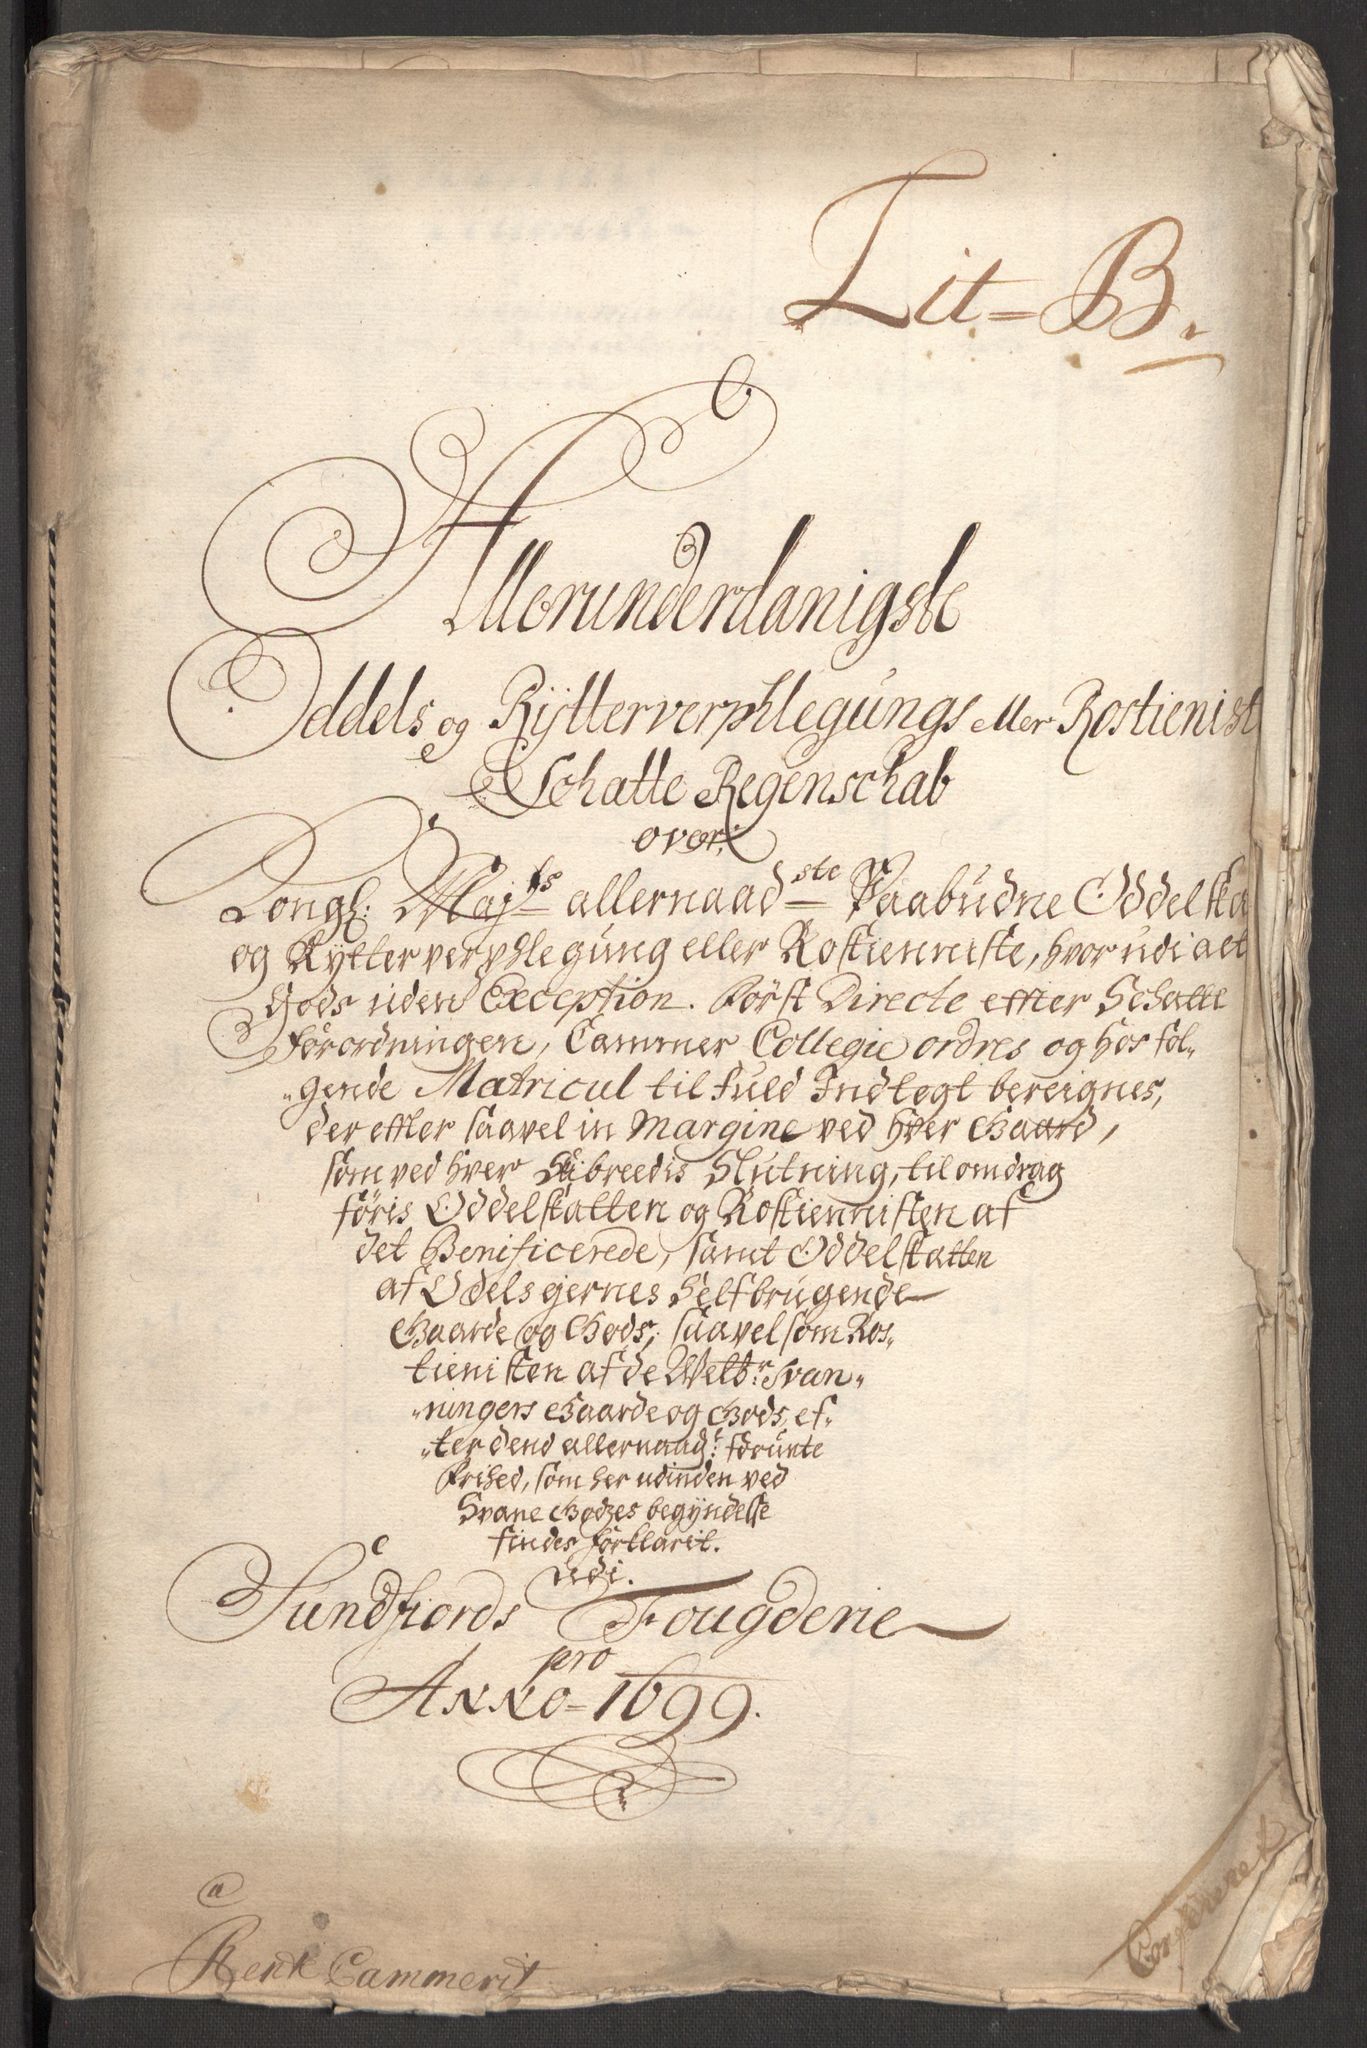 Lit = B.
Allerunderdanigste
Oddels og Rÿtterverphlegungs eller Rostienist
Schatte Regenschab
over,
Kongl: Maj:ts allernaad:ste Paabudne Oddelska
og Rytterverphlegung eller Rostienniste, hvorudi alt
Gods uden Exception. Först Directe effter Schatte
forordningen, Cammer Collegie ordres og hos föl-
-gende Matricul til fuld Indtegt bereignes,
der effter saavel in Margine ved hver Gaard,
som ved hver Skibredis Slutning, til omdrag
föris Oddelskatten og Rostiennisten af
det Benificerede, samt Oddelskatten
af Odelsgiernes Self brugende
Gaarde og Gods; saavelsom Ros-
tienisten af de Welb:r Svan-
-ningers Gaarde og Gods, ef-
-ter dend allernaad:t forunte
Frihed, som her udinden ved
Svane Godzes begÿndelse
findes forklarit.
udi.
Sundfiords Fougderie
pro
Anno = 1699.
a
Rent Cammerit